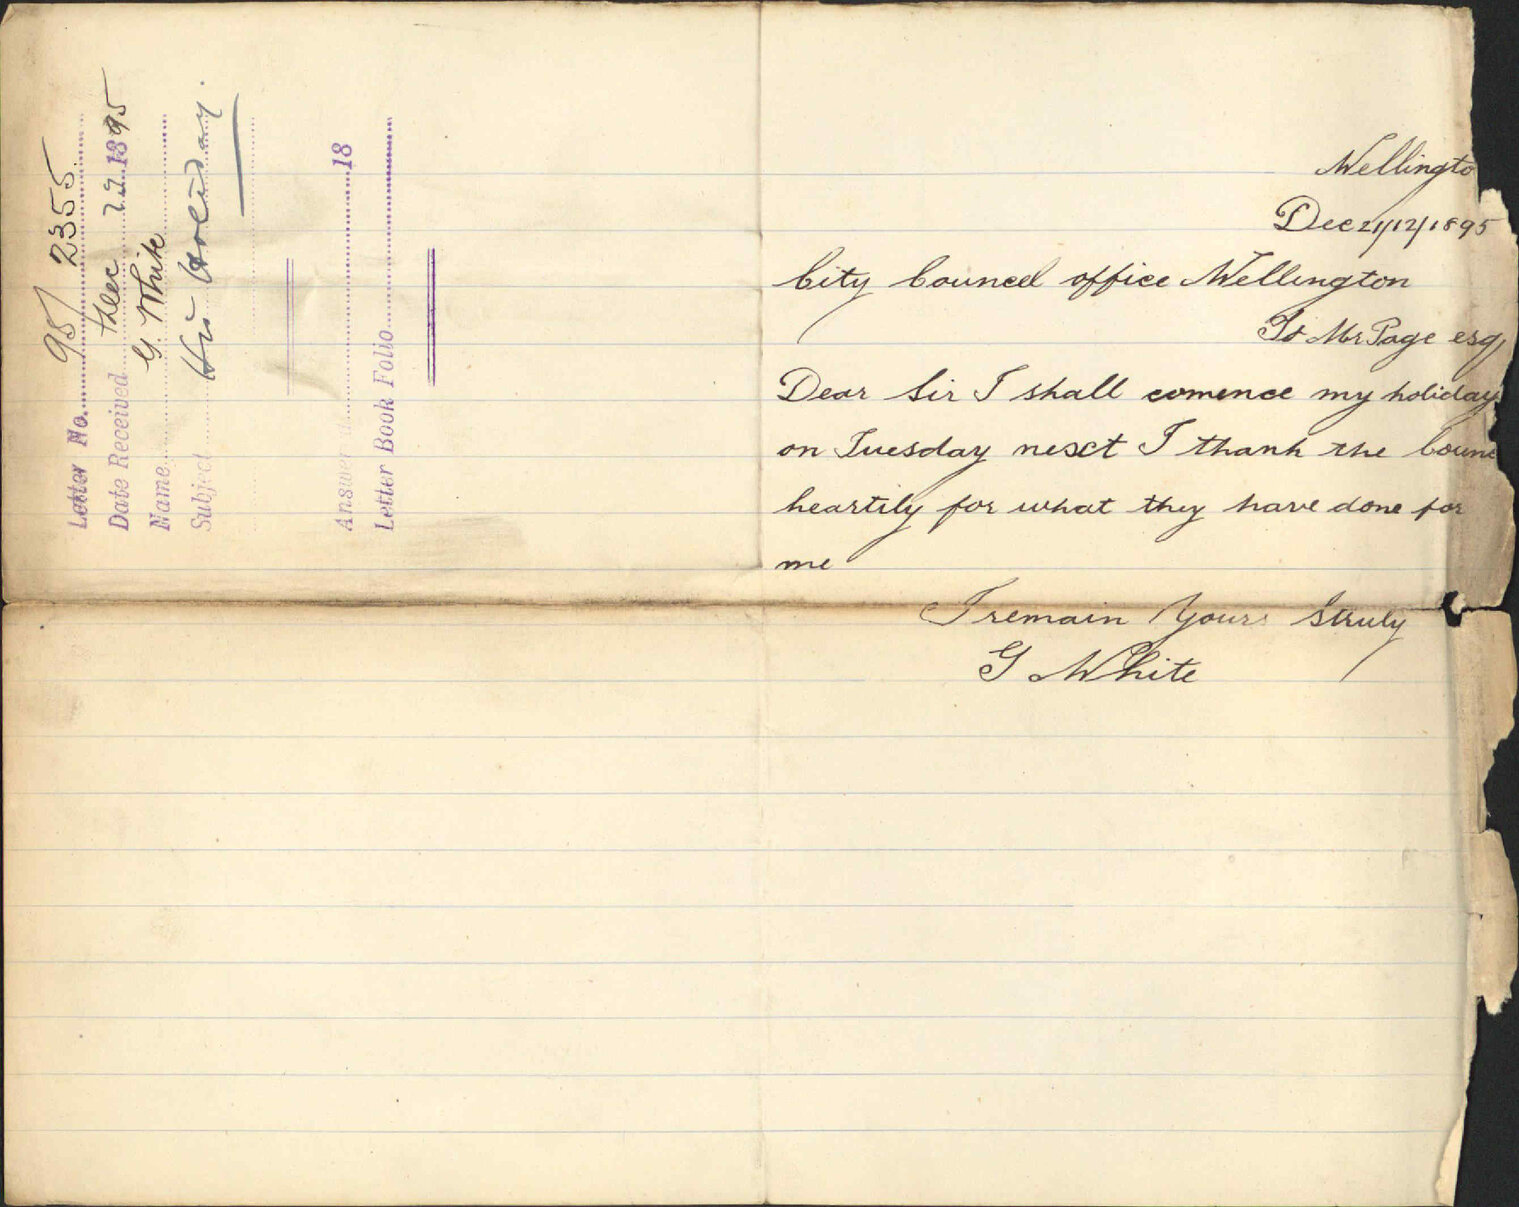 Letter No. 95/2355
Date Received Dec 1895
Name G White
Subject His Holiday.
Answer 18
Letter Book Folio
Wellingto
Dec 21/12/1895
City Councel office Wellington
To Mr Page esq
Dear Sir I shall comence my holiday
on Tuesday nesct I thank the Counc
heartily for what they have done for
me
I remain Yours truly
G White